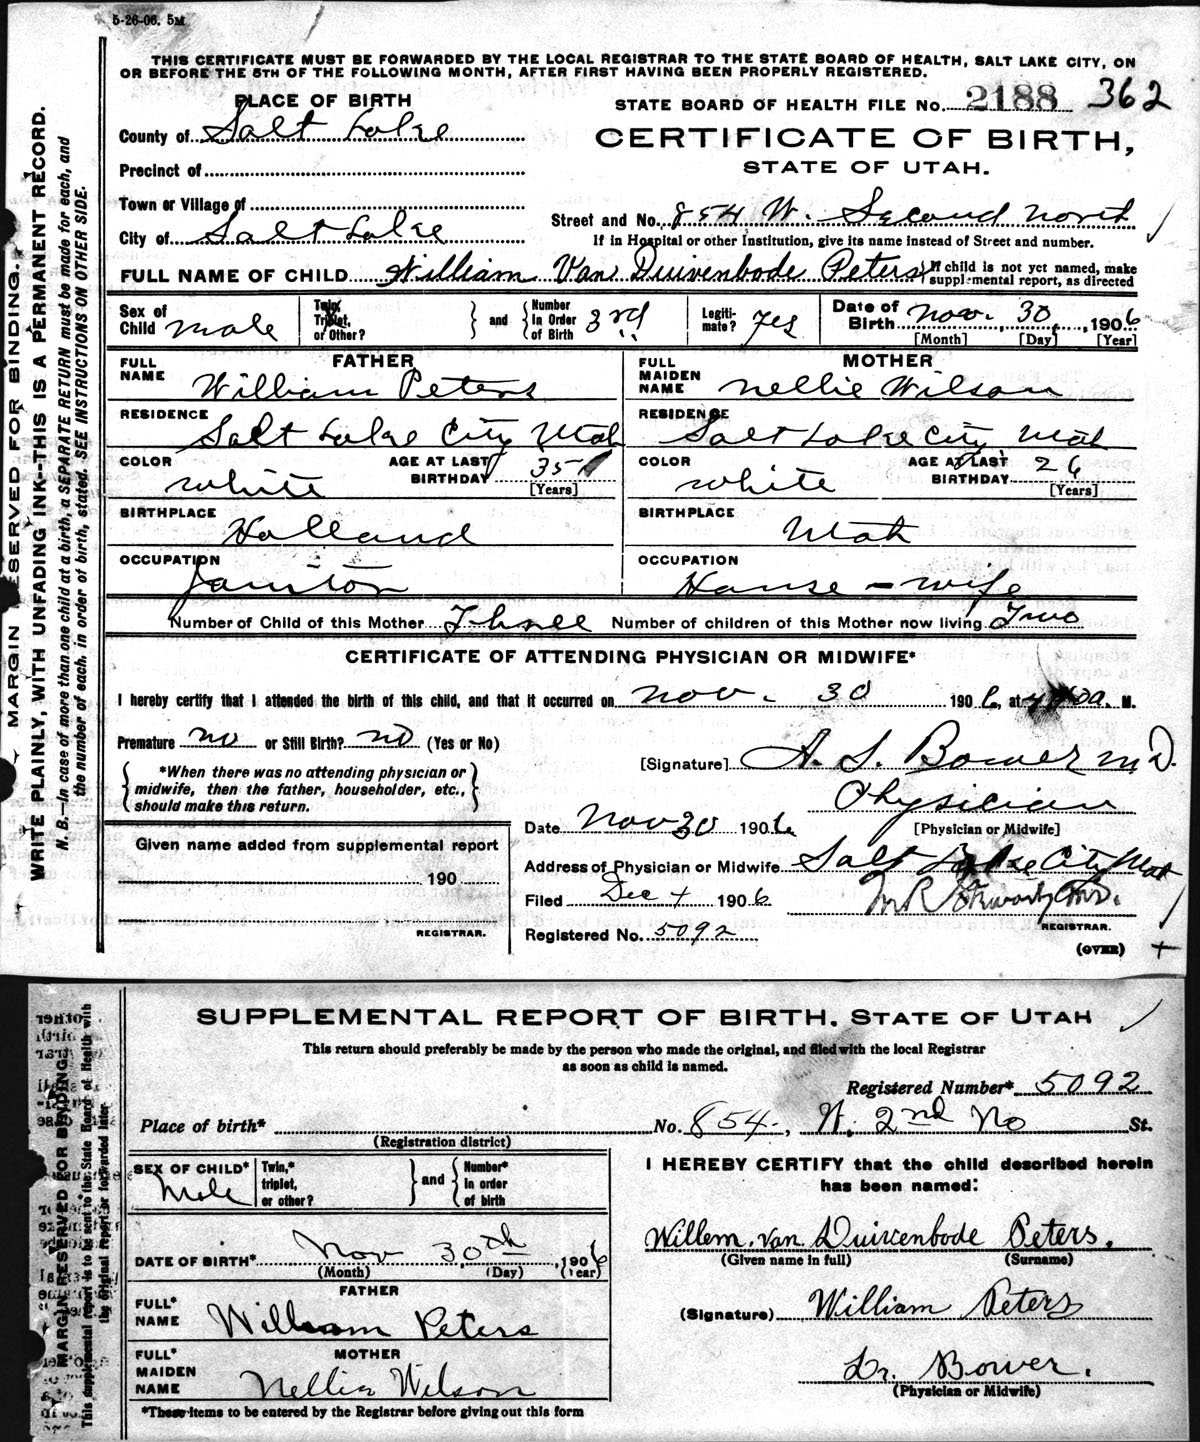 5-26-06. 5M
THIS CERTIFICATE MUST BE FORWARDED BY THE LOCAL REGISTRAR TO THE STATE BOARD OF HEALTH, SALT LAKE CITY, ON
OR BEFORE THE 5TH OF THE FOLLOWING MONTH, AFTER FIRST HAVING BEEN PROPERLY REGISTERED.
MARGIN RESERVED FOR BINDING.
WRITE PLAINLY, WITH UNFADING INK--THIS IS A PERMANENT RECORD.
N. B.—In case of more than one child at a birth, a SEPARATE RETURN must be made for each, and
the number of each, in order of birth, stated. SEE INSTRUCTIONS ON OTHER SIDE.
PLACE OF BIRTH
County of Salt Lake
Precinct of
Town or Village of
City of Salt Lake
STATE BOARD OF HEALTH FILE No. 2188 362
CERTIFICATE OF BIRTH,
STATE OF UTAH.
Street and No. 854 W. Second North
If in Hospital or other Institution, give its name instead of Street and number.
FULL NAME OF CHILD William Van Duivenbode Peters { If child is not yet named, make
supplemental report, as directed
Sex of Child Male
Twin, Triplet, or Other? } and { Number in Order of Birth 3rd
Legitimate? Yes
Date of Birth Nov. 30, 1906
[Month] [Day] [Year]
FATHER
FULL NAME William Peters
RESIDENCE
Salt Lake City Utah
COLOR White AGE AT LAST BIRTHDAY 35
[Years]
BIRTHPLACE
Holland
OCCUPATION
Janitor
MOTHER
FULL MAIDEN NAME Nellie Wilson
RESIDENCE
Salt Lake City Utah
COLOR White AGE AT LAST BIRTHDAY 26
[Years]
BIRTHPLACE
Utah
OCCUPATION
House-wife
Number of Child of this Mother Three Number of children of this Mother now living Two
CERTIFICATE OF ATTENDING PHYSICIAN OR MIDWIFE*
I hereby certify that I attended the birth of this child, and that it occurred on Nov. 30 1906, at a. M.
Premature No or Still Birth? No (Yes or No)
{ *When there was no attending physician or
midwife, then the father, householder, etc.,
should make this return. }
[Signature] A. S. Bower M.D.
Physician
[Physician or Midwife]
Date Nov 30 1906
Address of Physician or Midwife Salt Lake City Utah
Filed Dec 1906
REGISTRAR.
Registered No. 5092
(OVER) +
Given name added from supplemental report
190
REGISTRAR.
SUPPLEMENTAL REPORT OF BIRTH. STATE OF UTAH
This return should preferably be made by the person who made the original, and filed with the local Registrar
as soon as child is named.
MARGIN RESERVED FOR BINDING.
This supplemental report is to be sent to the State Board of Health with
the original report or forwarded later.
Registered Number* 5092
Place of birth* No. 854, W. 2nd No St.
(Registration district)
SEX OF CHILD* Male
Twin,* triplet, or other? } and { Number* in order of birth
DATE OF BIRTH* Nov 30th, 1906
(Month) (Day) (Year)
FATHER
FULL* NAME William Peters
MOTHER
FULL* MAIDEN NAME Nellie Wilson
*These items to be entered by the Registrar before giving out this form
I HEREBY CERTIFY that the child described herein
has been named:
Willem. van Duivenbode Peters.
(Given name in full) (Surname)
(Signature) William Peters
Dr. Bower.
(Physician or Midwife)